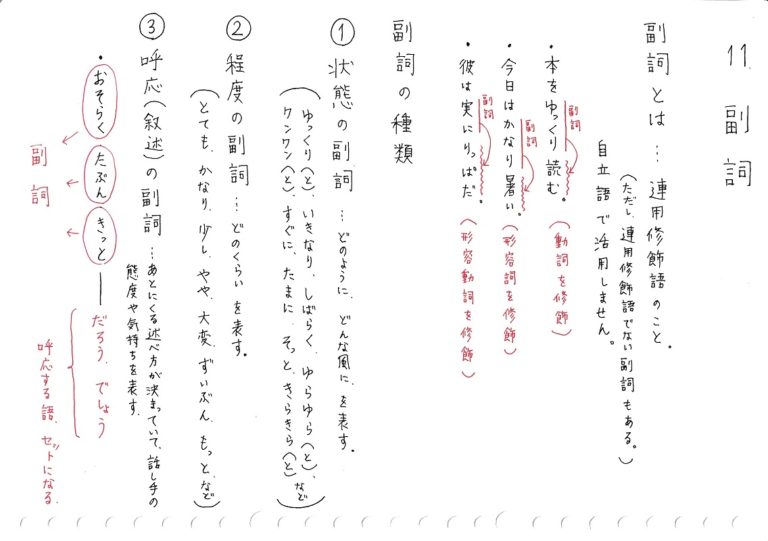 11. 副詞
副詞とは… 連用修飾語のこと。
(ただし、連用修飾語でない副詞もある。)
自立語で活用しません。
・本をゆっくり読む。(動詞を修飾)
副詞
・今日はかなり暑い。(形容詞を修飾)
副詞
・彼は実にりっぱだ。(形容動詞を修飾)
副詞
副詞の種類
① 状態の副詞 …どのように、どんな風に、を表す。
(ゆっくり(と)、いきなり、しばらく、ゆらゆら(と)、
ワンワン(と)、すぐに、たまに、そっと、きらきら(と) など)
② 程度の副詞 …どのくらい を表す。
(とても、かなり、少し、やや、大変、ずいぶん、もっと、など)
③ 呼応(叙述)の副詞 …あとにくる述べ方が決まっていて、話し手の
態度や気持ちを表す。
・おそらく たぶん きっと ― だろう、でしょう
副詞
呼応する語、セットになる。